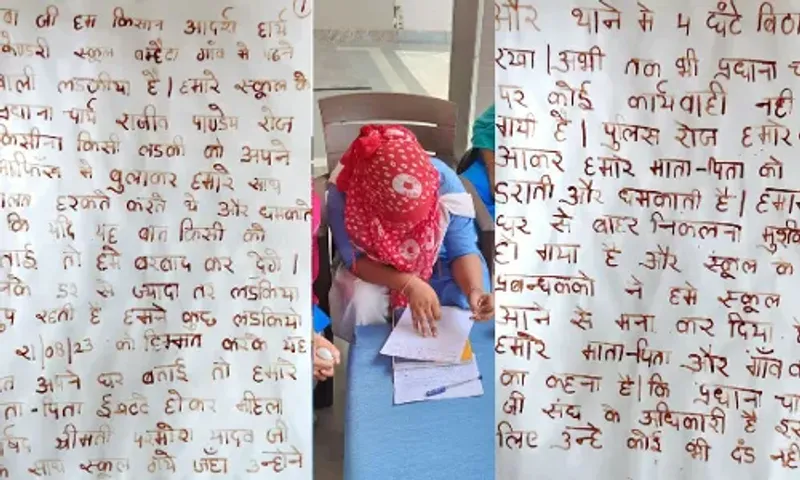 बा जी हम किसान आदर्श हायर
केण्डरी स्कूल बम्हैटा गाँव मे पढने
वाली लडकीया है | हमारे स्कूल के
प्रधाना चार्य राजीव पाण्डेय रोज
किसीना किसी लडकी को अपने
ऑफिस मे बुलाकर हमारे साथ
गलत हरकते करते थे और धमकाते
कि यदि यह बात किसी को
बताई तो हमे बरबाद कर देगे |
उनके डर से ज्यादा तर लडकिया
चुप रहती है हमने कुछ लडकियो
21/08/23 को हिम्मत करके यह
बात अपने घर बताई तो हमारे
माता-पिता ईकटटे होकर महिला
पार्षद श्रीमती परमोश यादव जी
के साथ स्कूल गये जँहा उन्होने
और थाने मे 4 घंटे बिठा
रखा | अभी तक भी प्रधाना चा
पर कोई कार्यवाही नही
गयी है | पुलिस रोज हमारे
आकर हमारे माता-पिता को
डराती और धमकाती है | हमा
घर से बाहर निकलना मुश्कि
हो गया है और स्कूल के
प्रबन्धकको ने हमे स्कूल
आने से मना कर दिया है
हमारे माता-पिता और गाँव व
का कहना है | कि प्रधाना चा
जी संघ के अधिकारी है इस
लिए उन्हे कोई भी दंड नही